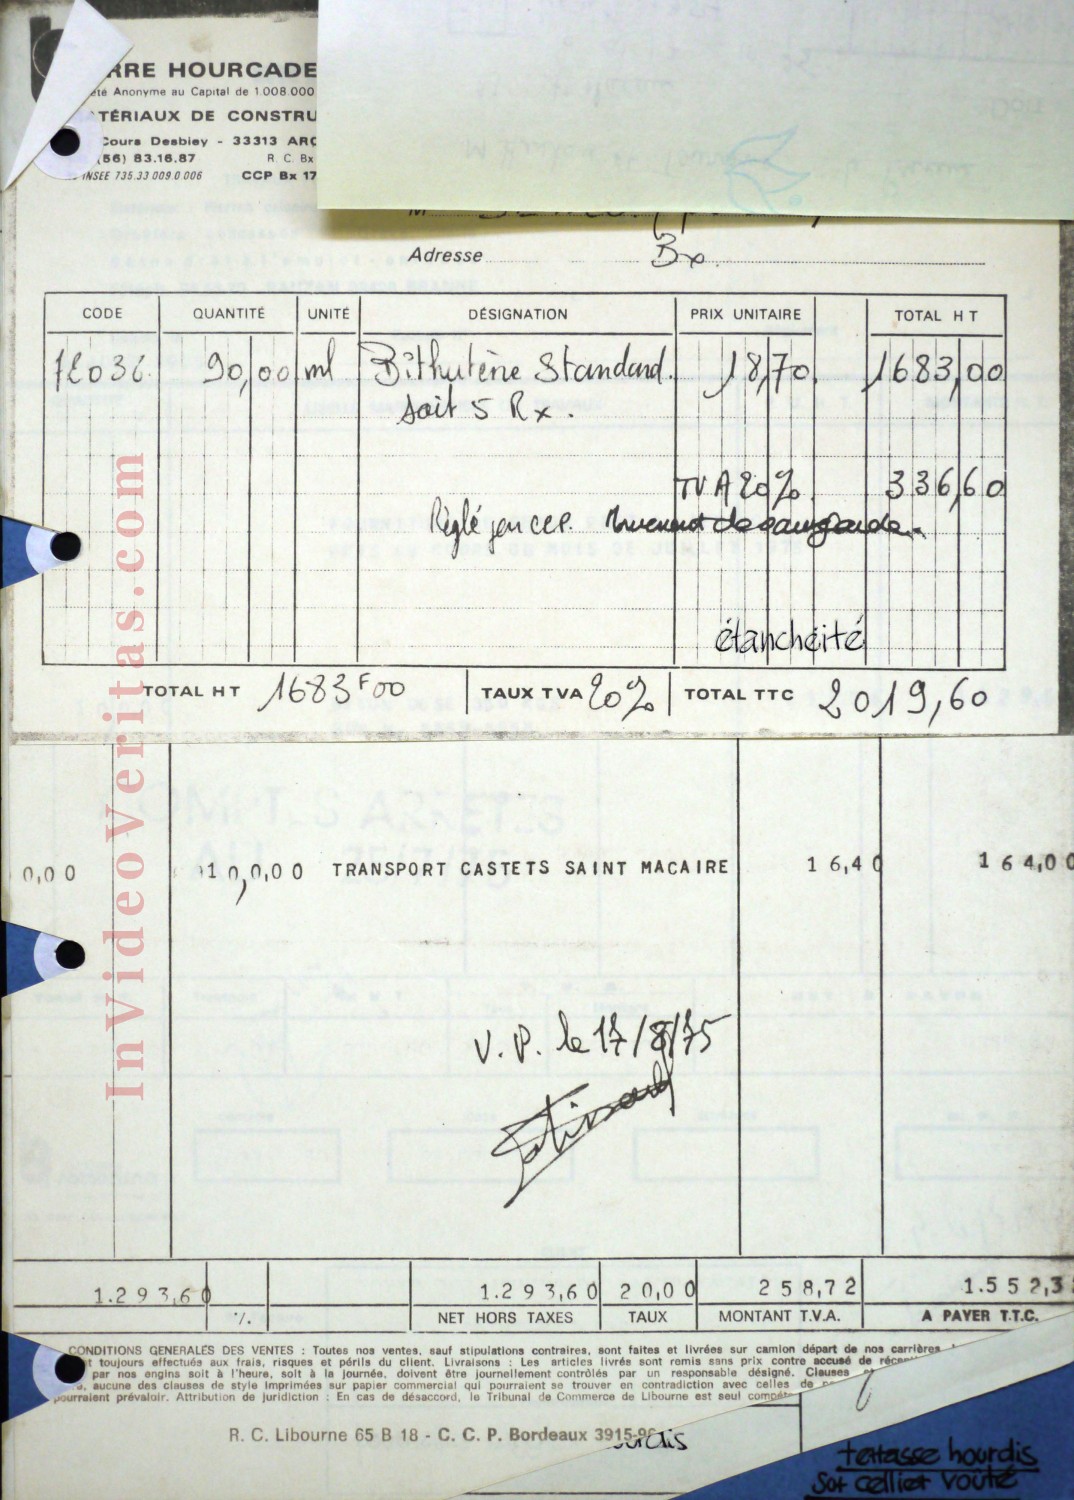 RRE HOURCADE
été Anonyme au Capital de 1.008.000
TÉRIAUX DE CONSTRU
Cours Desbiey - 33313 ARC
(56) 83.16.87 R. C. Bx
INSEE 735.33 009 0 006 CCP Bx 17
M
Adresse Bx.
CODE QUANTITÉ UNITÉ DÉSIGNATION PRIX UNITAIRE TOTAL HT
90,00 ml Standard. 18,70. 1683,00
soit 5 Rx.
TVA 20%. 336,60
Réglé par CCP.
étanchéité
TOTAL HT 1683F00 TAUX TVA 20% TOTAL TTC 2019,60
0,00 10,0,00 TRANSPORT CASTETS SAINT MACAIRE 16,40 164,00
V. P. le 17/8/75
1.293,60 1.293,60 20,00 258,72 1.552,3
%. NET HORS TAXES TAUX MONTANT T.V.A. A PAYER T.T.C.
CONDITIONS GENERALES DES VENTES : Toutes nos ventes, sauf stipulations contraires, sont faites et livrées sur camion départ de nos carrières
t toujours effectués aux frais, risques et périls du client. Livraisons : Les articles livrés sont remis sans prix contre accusé de récep
par nos engins soit à l'heure, soit à la journée, doivent être journellement contrôlés par un responsable désigné. Clauses
aucune des clauses de style imprimées sur papier commercial qui pourraient se trouver en contradiction avec celles de
pourraient prévaloir. Attribution de juridiction : En cas de désaccord, le Tribunal de Commerce de Libourne est seul compéte
R. C. Libourne 65 B 18 - C. C. P. Bordeaux 3915-96
ourdis
terrasse hourdis
Sol cellier vouté
InVideoVeritas.com